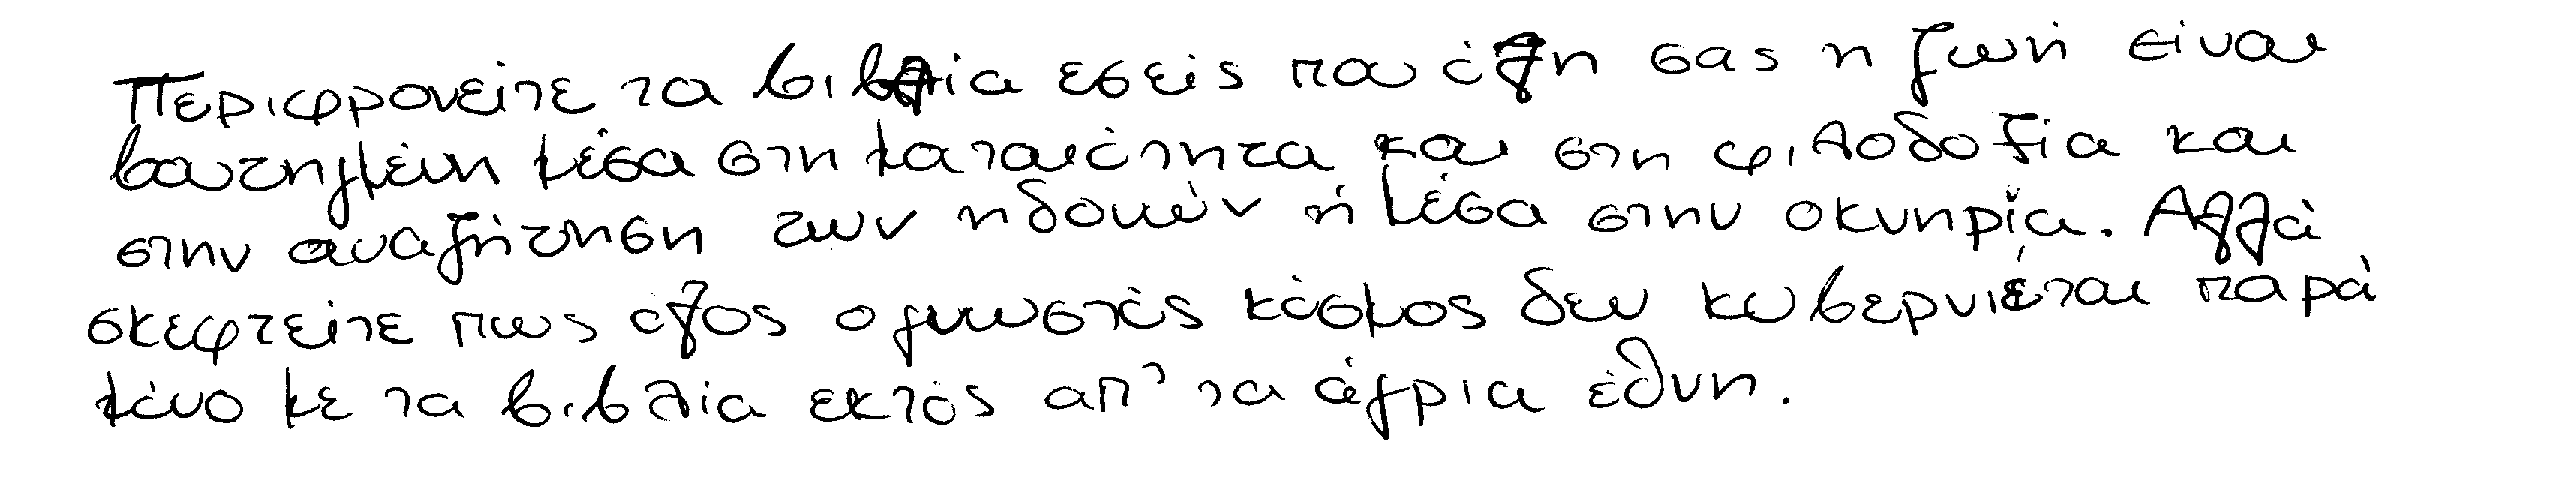 Περιφρονείτε τα βιβλία εσείς που όλη σας η ζωή είναι
βουτηγμένη μέσα στη ματαιότητα και στη φιλοδοξία και
στην αναζήτηση των ηδονών ή μέσα στην οκνηρία. Αλλά
σκεφτείτε πως όλος ο γνωστός κόσμος δεν κυβερνιέται παρά
μόνο με τα βιβλία εκτός απ' τα άγρια έθνη.